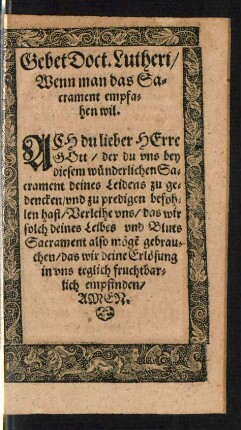 Gebet Doct. Lutheri/
Wenn man das Sa-
crament empfa-
hen wil.
ACH du lieber HErre
GOtt / der du vns bey
diesem wünderlichen Sa-
crament deines Leidens zu ge-
dencken/vnd zu predigen befoh-
len hast/Verleihe vns/das wir
solch deines Leibes vnd Bluts
Sacrament also mögē gebrau-
chen/das wir deine Erlösung
in vns teglich fruchtbar-
lich empfinden/
AMEN.